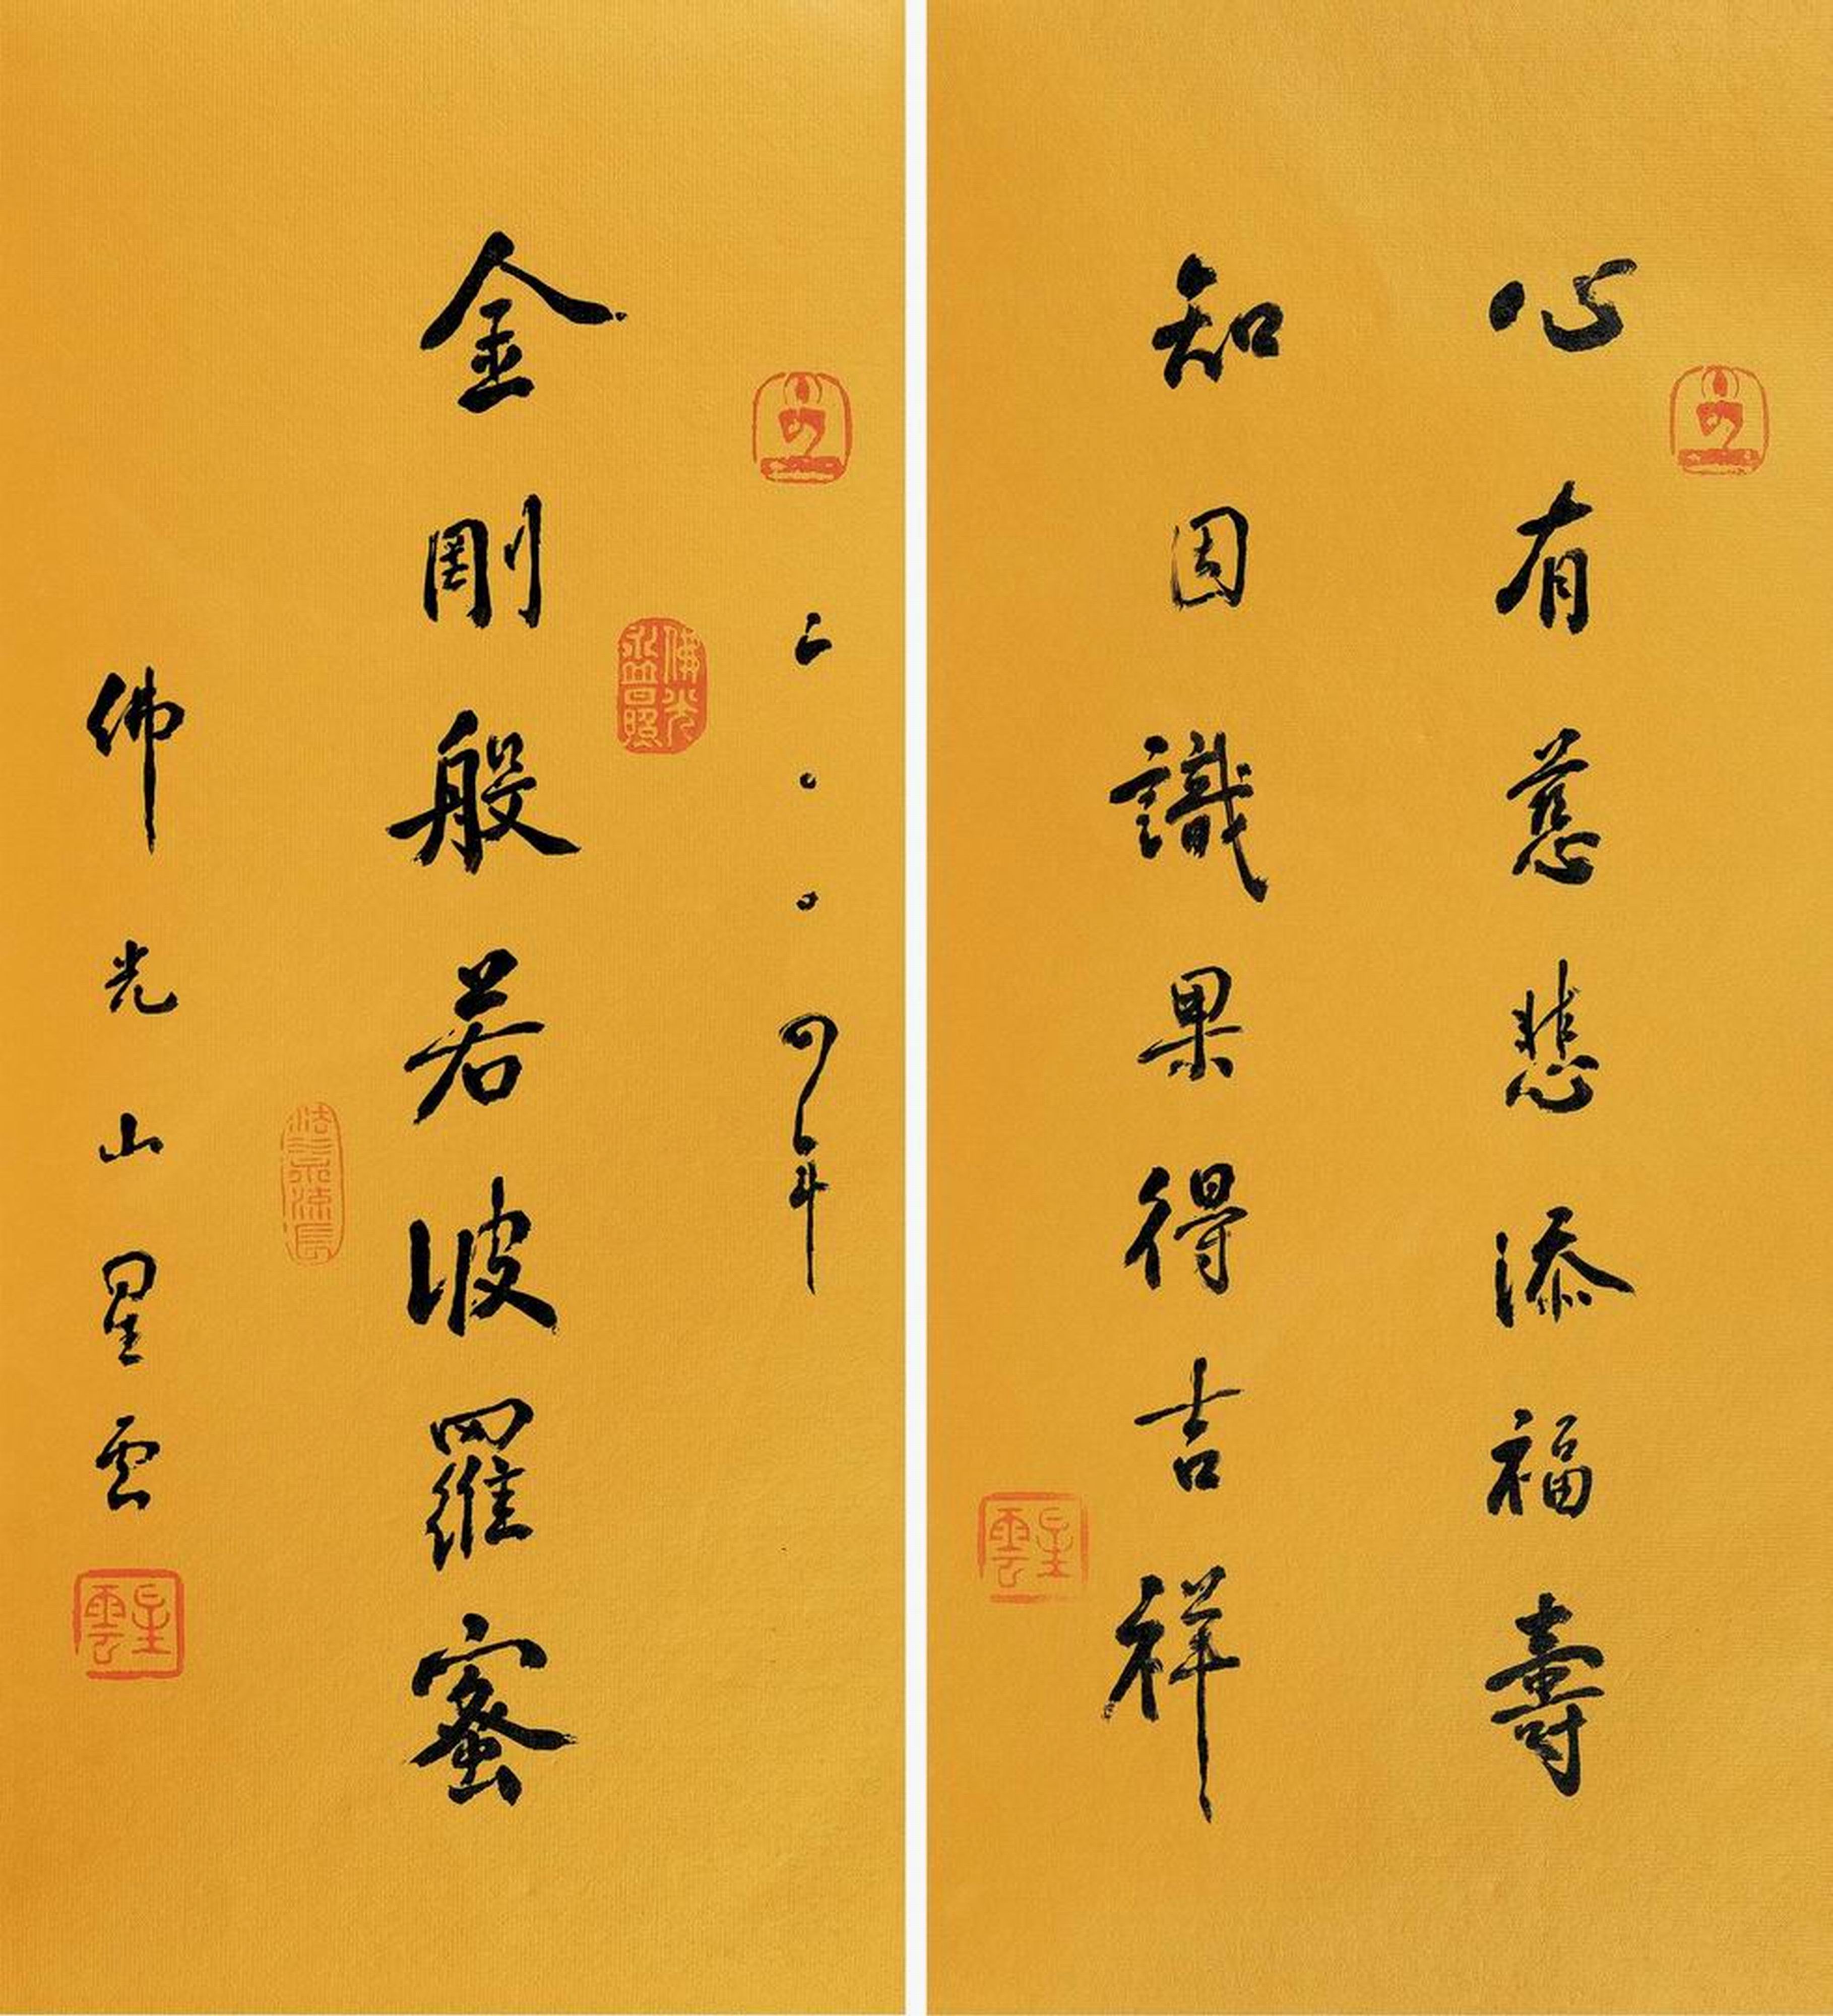 心有慈悲添福壽
知因識果得吉祥
星雲
二〇〇四年
金剛般若波羅蜜
佛光山星雲
星雲